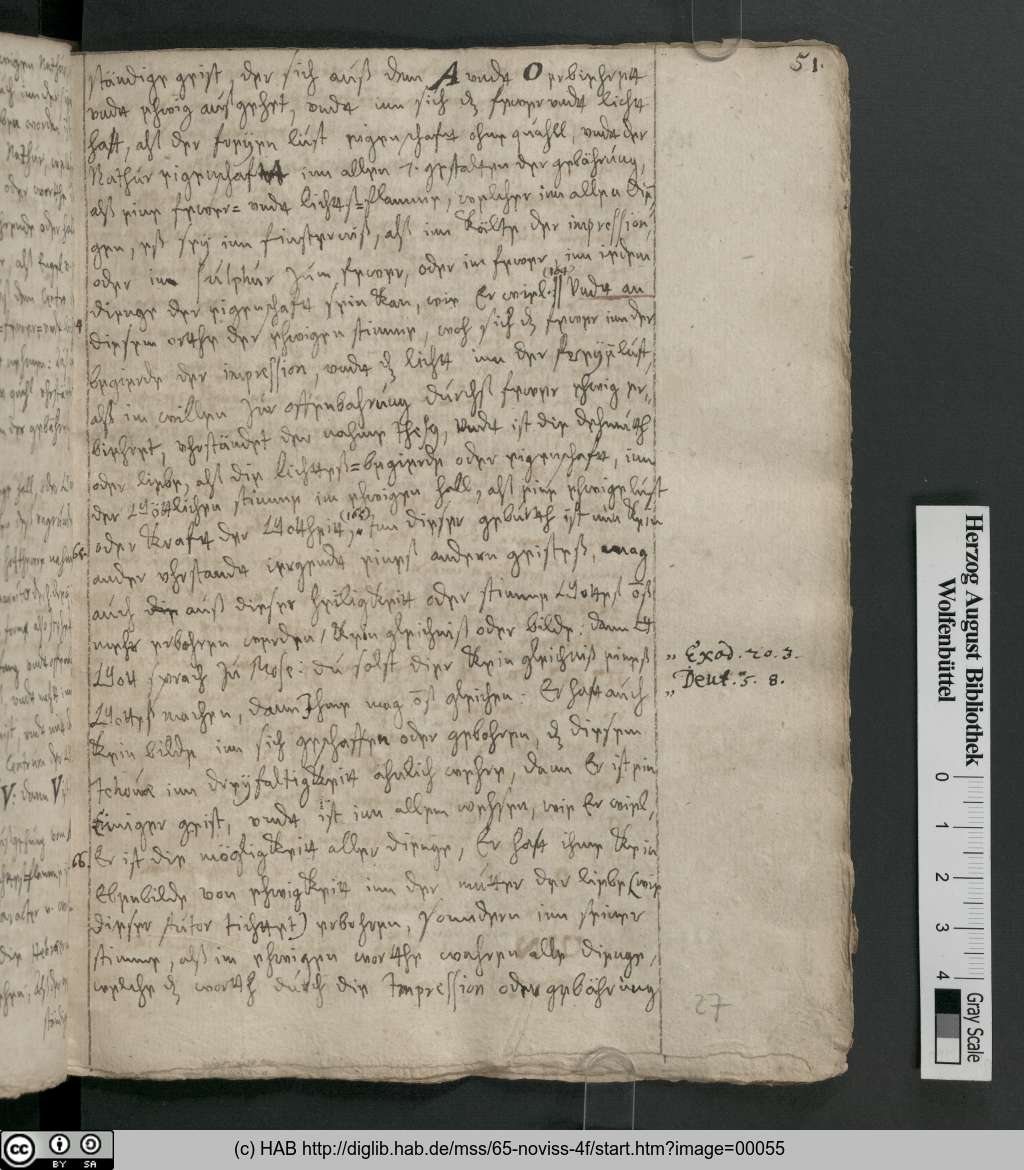 51.
ständige geist, der sich auß dem A undt O erbiehrett
undt ehwig außgehet, undt inn sich dz fewer undt licht
hatt, alß der freyen lust eigenschafft ohne quahll, undt der
Nathur eigenschafft inn allen 7. gestalten der gebährung,
alß eine fewer= undt lichtß=flamme, welcher inn allen din-
gen, eß sey inn finsternüß, alß inn Kälte der impression,
oder im sulphur zum fewer, oder im fewer, inn iedem
dienge der eigenschafft sein Kan, wie Er wiel. (164) Undt an
diesem orthe der ehwigen stimme, woh sich dz fewer inn der
begierde der impression, undt dz licht inn der freyen lust,
alß im willen zur offenbahrung durchß fewer ehwig er-
biehret, uhrständet der nahme Jhesu, undt ist die dehmuth
oder liebe, alß die lichteß=begierde oder eigenschafft, inn
der Göttlichen stimme im ehwigen hall, alß eine ehwige lust
65. oder Krafft der Gottheitt, (165) Inn dieser geburth ist nun Kein
ander uhrstandt iergendt eineß andern geisteß, mag
auch auß dieser heiligKeitt oder stimme Gotteß
mehr erbohren werden, Kein gleichniß oder bilde. dann
Gott sprach zu Mose: du solst dier Kein gleichniß eineß
Gotteß machen, dann Ihme mag gleichen. Er hatt auch
Kein bilde inn sich geschaffen oder gebohren, dz diesem
Jehova inn dreyfaltigKeitt ähnlich wehre, dann Er ist ein
Einiger geist, undt ist inn allem wehsen, wie Er wiel,
66. Er ist die mögligKeitt aller dienge, Er hatt ihme Kein
Ebenbilde von ehwigKeitt inn der mutter der liebe (wie
dieser Autor tichtet) erbohren, Sonndern inn seiner
stimme, alß im ehwigen worthe wahren alle dienge,
welche dz worth durch die Impression oder gebährung
" Exod. 20. 3.
Deut. 5. 8.
"
27
Herzog August Bibliothek
Wolfenbüttel
0 1 2 3 4
Gray Scale
cc BY SA
(c) HAB http://diglib.hab.de/mss/65-noviss-4f/start.htm?image=00055